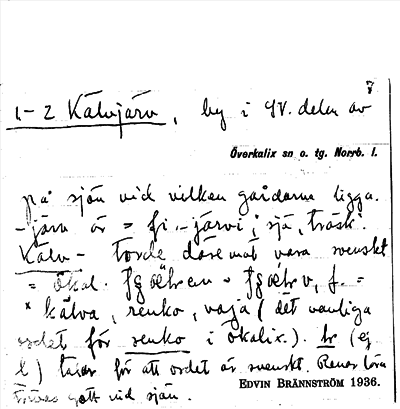 7
1-2 Kälvjärv, by i SV. delen av
Överkalix sn o. tg. Norrb. l.
på sjön vid vilken gårdarna ligga.
-järv är = fi. järvi, 'sjö, träsk'.
Kälv- torde däremot vara svenskt
= ökal. f. =
* kälva, renko, vaja (det vanliga
ordet för renko i ökalix.). (ej
l) talar för att ordet är svenskt. Renar lära
trivas gott vid sjön.
EDVIN BRÄNNSTRÖM 1936.